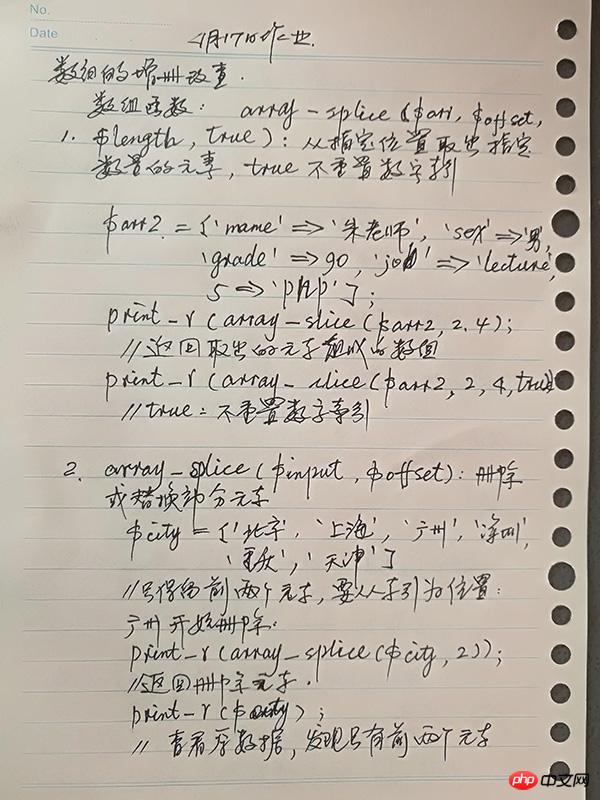 No.
Date
4月17日作业.
数组的增删改查.
数组函数: array-splice($arr, $offset,
1. $length, true): 从指定位置取出指定
数量的元素, true 不重置数字索引
$arr2 = ['name' => '朱老师', 'sex' => '男,
'grade' => 90, 'job' => 'lecture',
5 => 'php'];
print-r(array-slice($arr2, 2.4);
//返回取出的元素组成的数组
print-r(array-slice($arr2, 2, 4, true)
//true: 不重置数字索引
2. array-splice($input, $offset): 删除
或替换部分元素
$city = ['北京', '上海', '广州', '深圳',
'重庆', '天津']
//只保留前两个元素, 要从索引为位置:
广州开始删除.
print-r(array-splice($city, 2));
//返回删除元素.
print-r($city);
// 查看原数据, 发现只有前两个元素
php 中文网